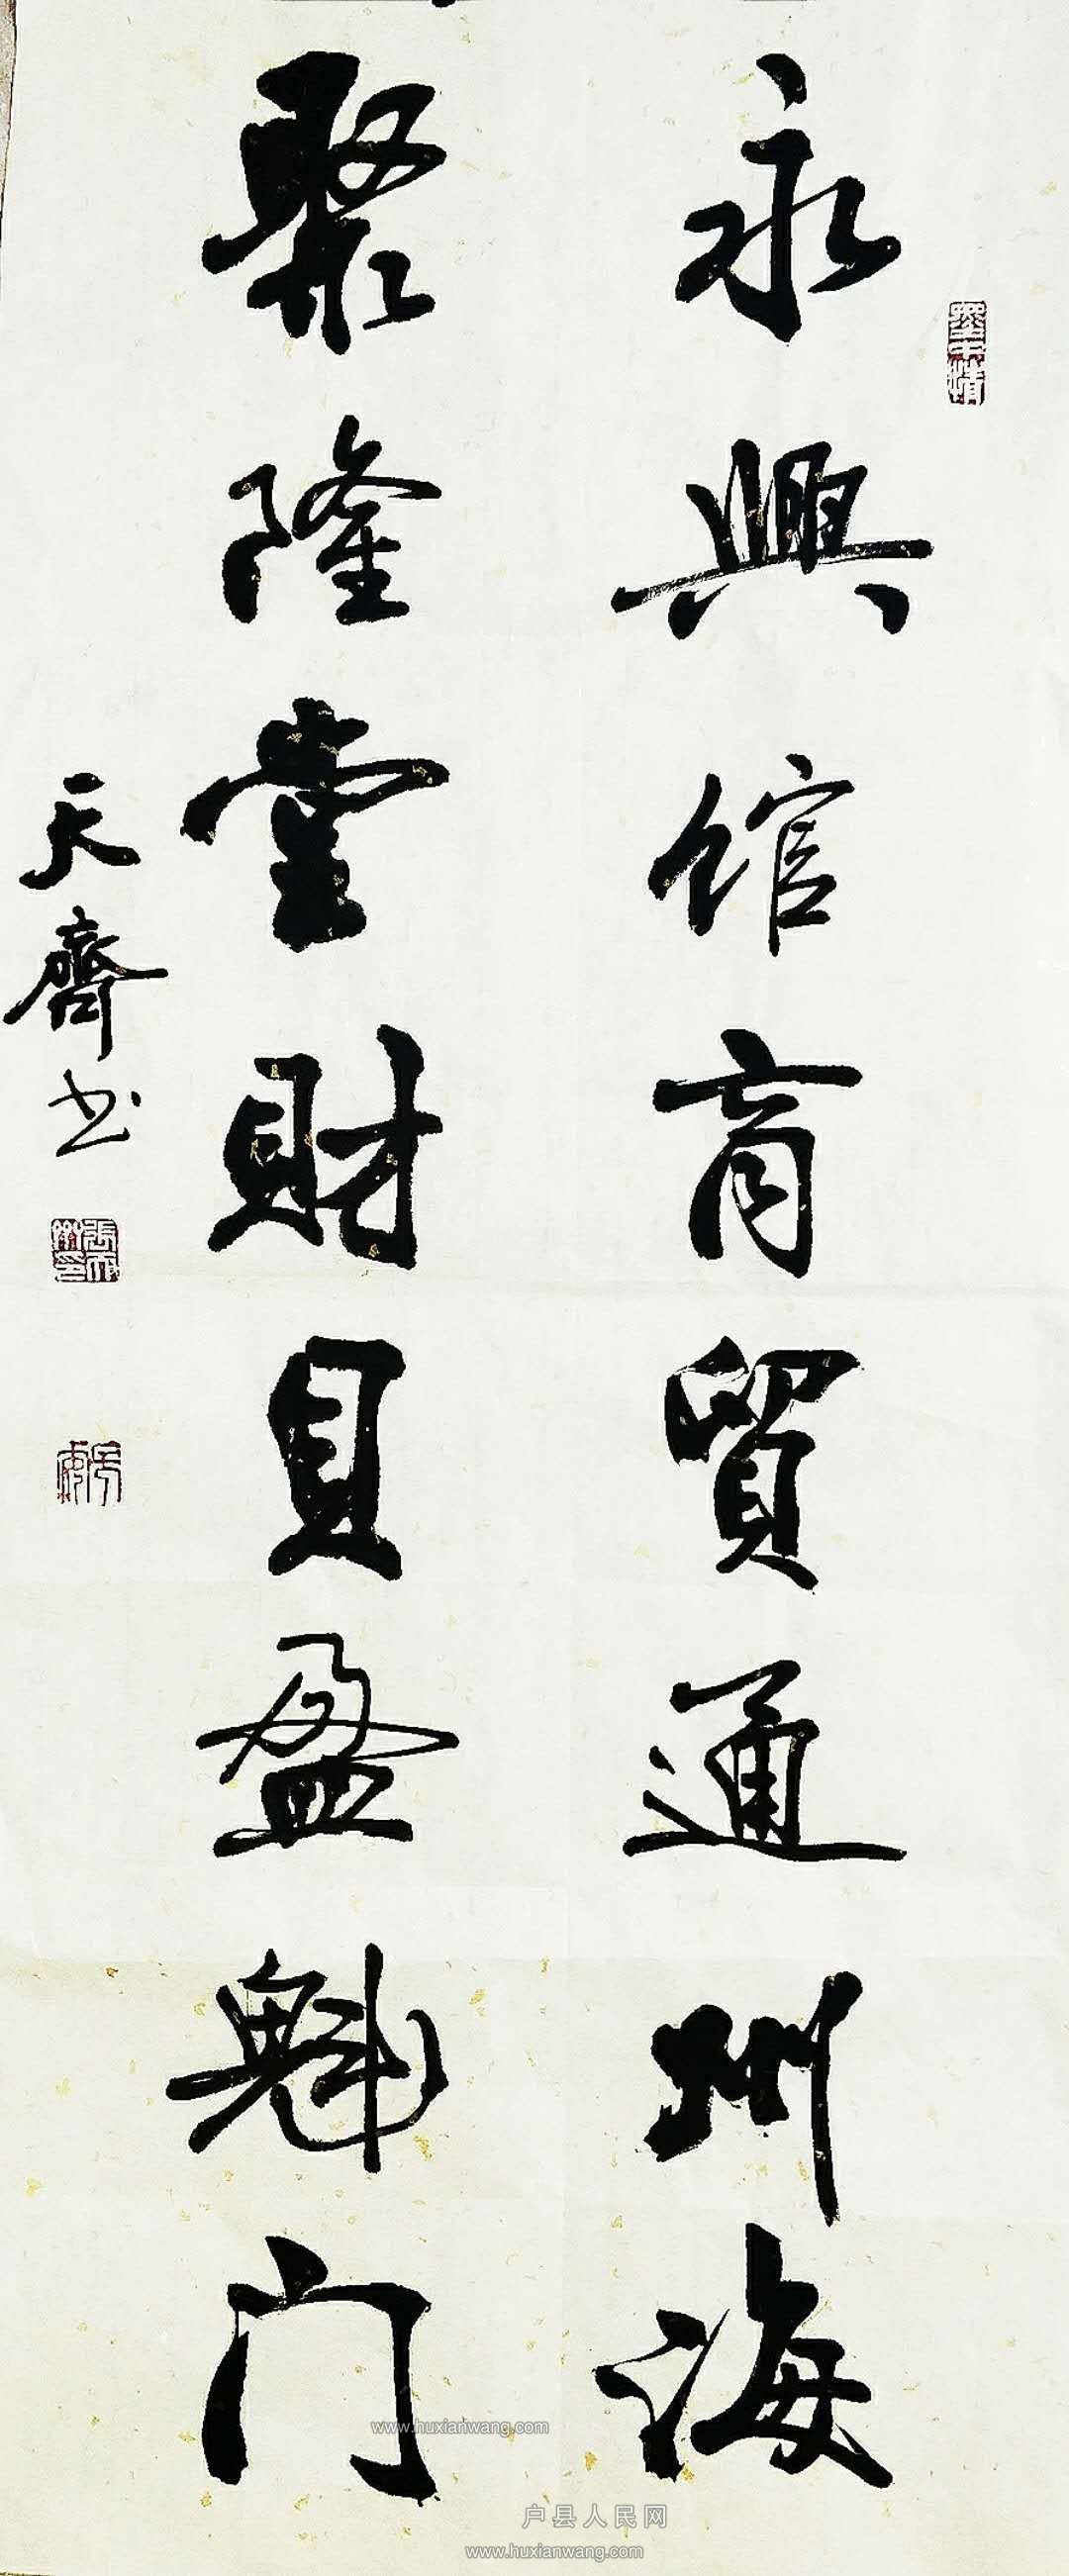 永興馆育貿通州海
聚隆堂財貝盈魁门
天齊书
www.huxianwang.com
户县人民网
www.huxianwang.com